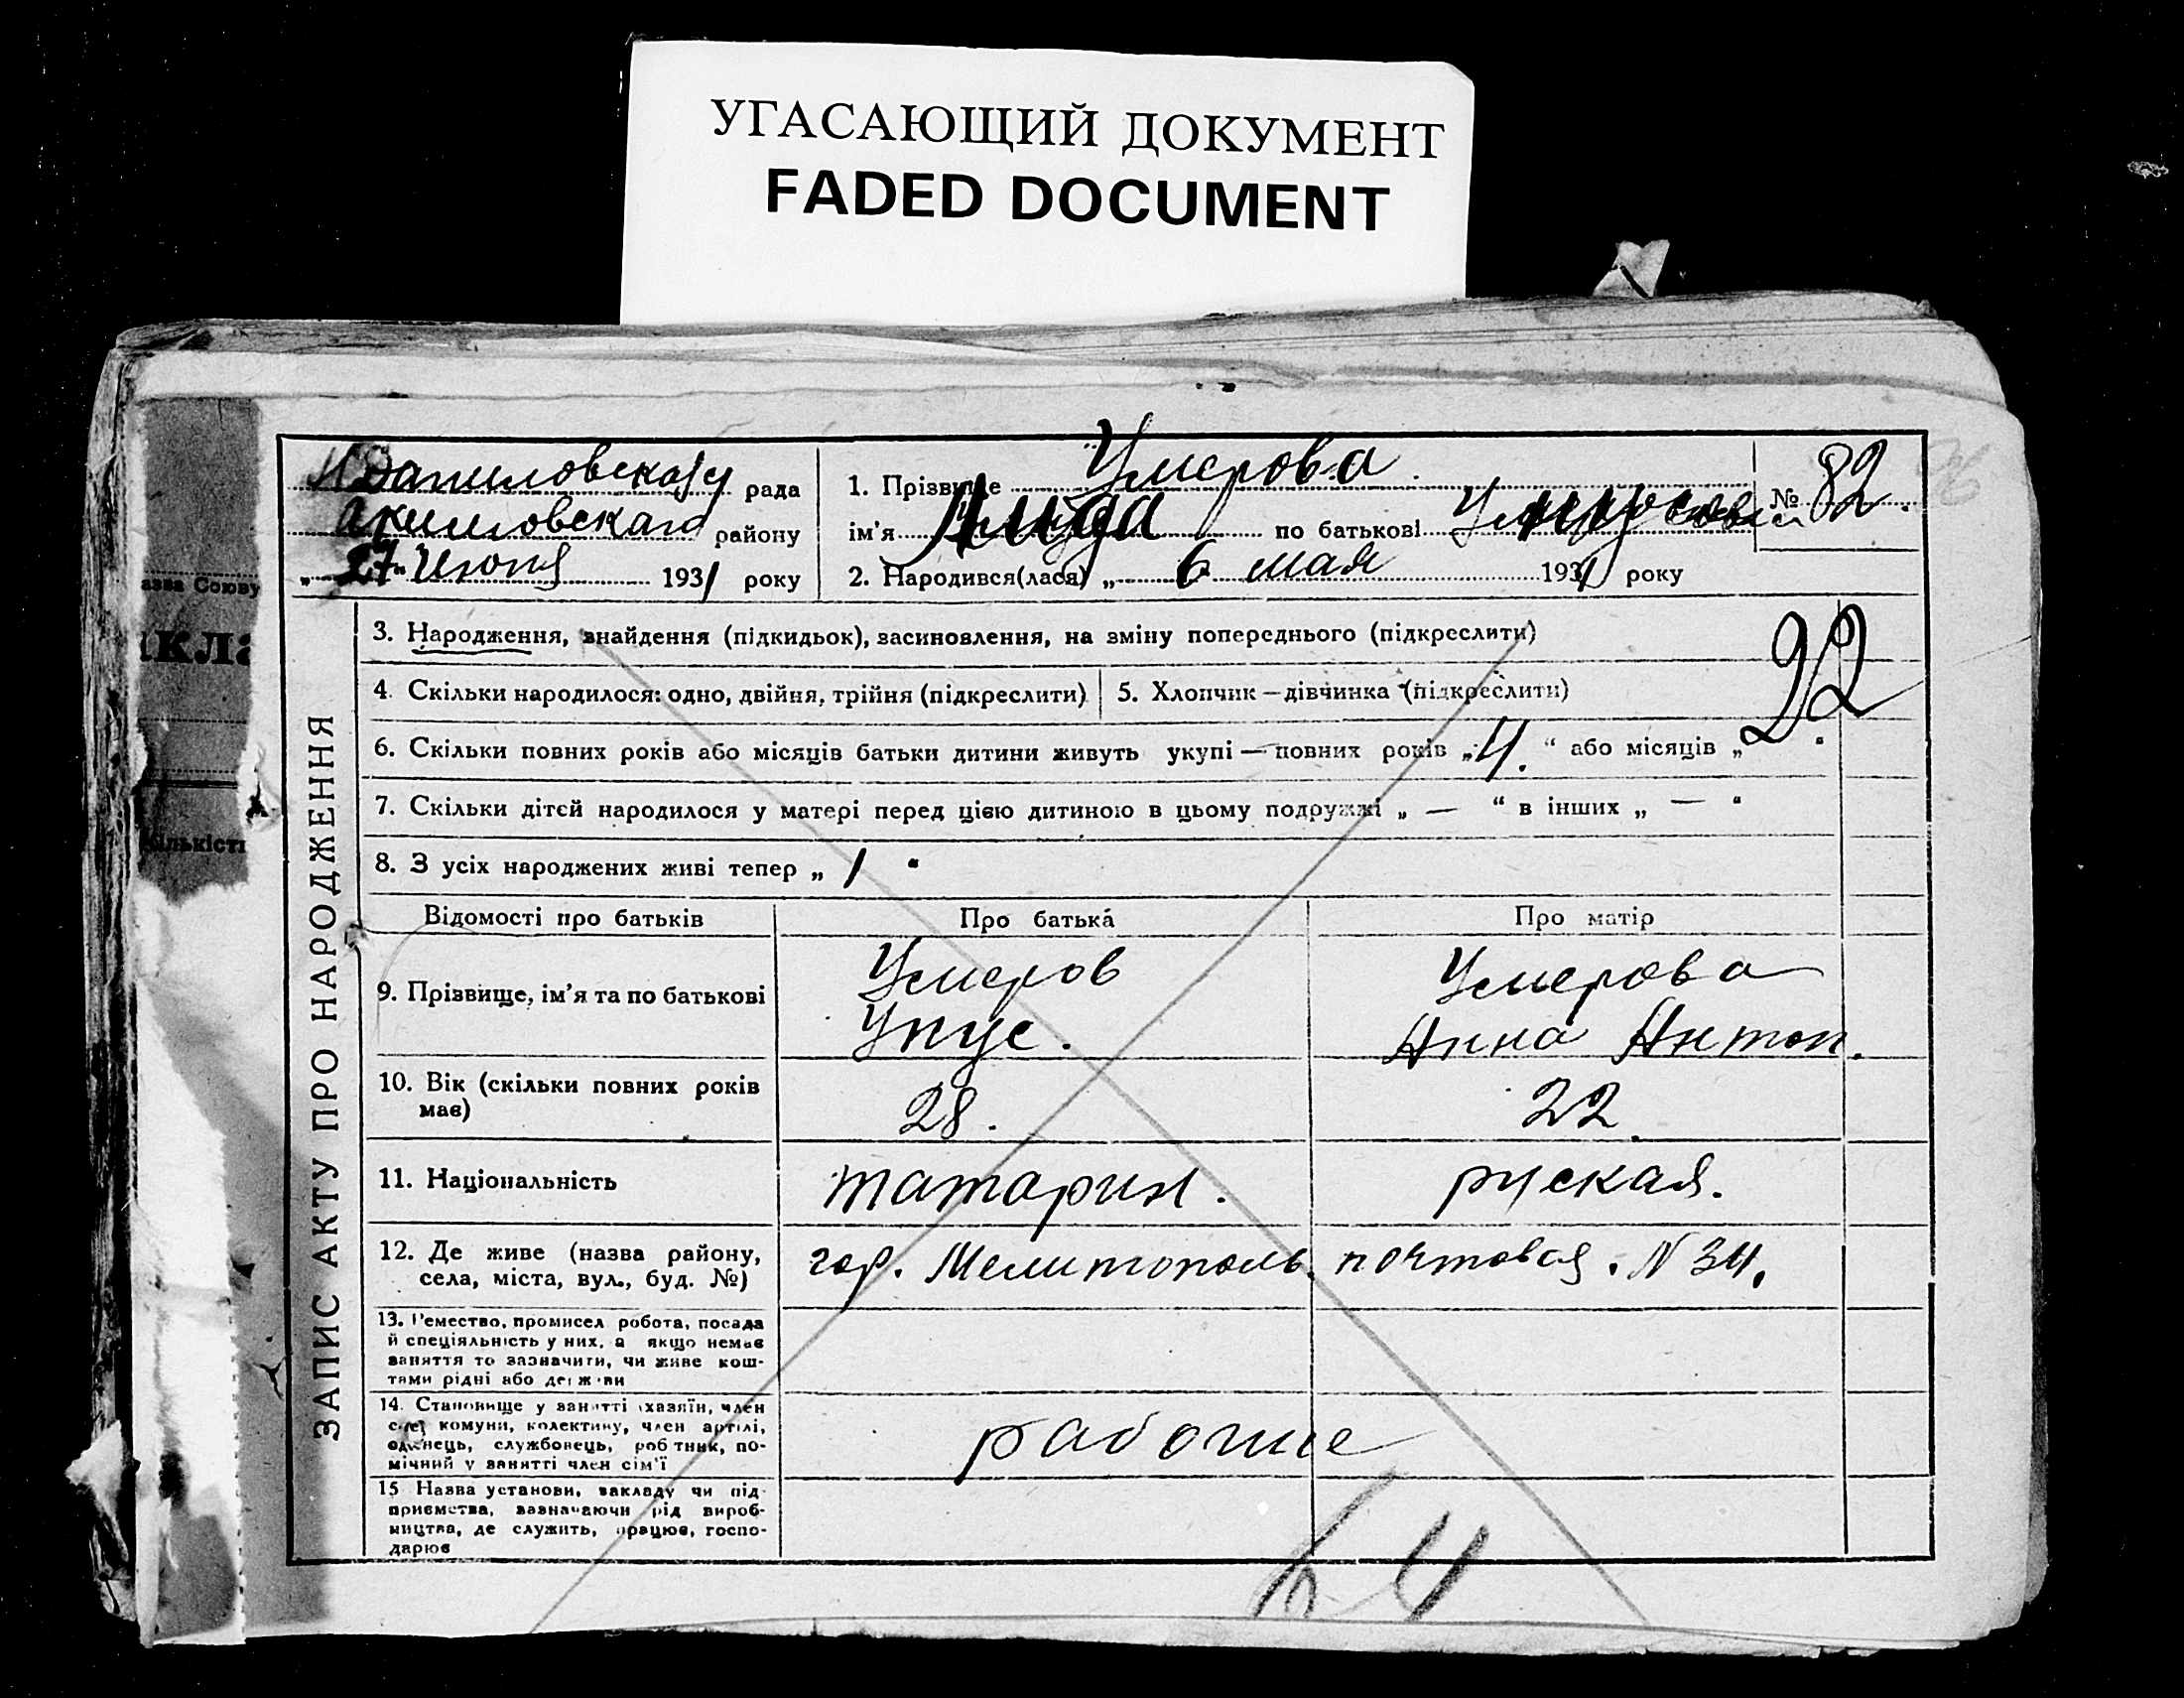 УГАСАЮЩИЙ ДОКУМЕНТ
FADED DOCUMENT
рада
Акимовскаго району
„27“ Июня 1931 року
1. Прізвище Умерова
ім'я Лида по батькові
№ 82.
2. Народився(лася) „ 6 мая 1931 року
22
ЗАПИС АКТУ ПРО НАРОДЖЕННЯ
3. Народження, знайдення (підкидьок), засиновлення, на зміну попереднього (підкреслити)
4. Скільки народилося: одно, двійня, трійня (підкреслити)
5. Хлопчик — дівчинка (підкреслити)
6. Скільки повних років або місяців батьки дитини живуть укупі — повних років „ 4. “ або місяців „ “
7. Скільки дітей народилося у матері перед цією дитиною в цьому подружжі „ — “ в інших „ — “
8. З усіх народжених живі тепер „ 1 “
Відомості про батьків
Про батька
Про матір
9. Прізвище, ім'я та по батькові
Умеров
Унус.
Умерова
Анна Антон.
10. Вік (скільки повних років
має)
28.
22.
11. Національність
татарин.
руская.
12. Де живе (назва району,
села, міста, вул., буд. №)
гор. Мелитополь. почтовая. N 34.
13. Ремество, промисел робота, посада
й спеціяльність у них, а якщо немає
заняття то зазначити, чи живе кош-
тами рідні або держави
14. Становище у занятті (хазяїн, член
с/г комуни, колективу, член артілі,
одинець, службовець, робітник, по-
мічний у занятті член сім'ї
рабочие
15 Назва установи, закладу чи під-
приємства, зазначаючи рід вироб-
ництва, де служить, працює, госпо-
дарює
азва Союзу
акла
ількіст